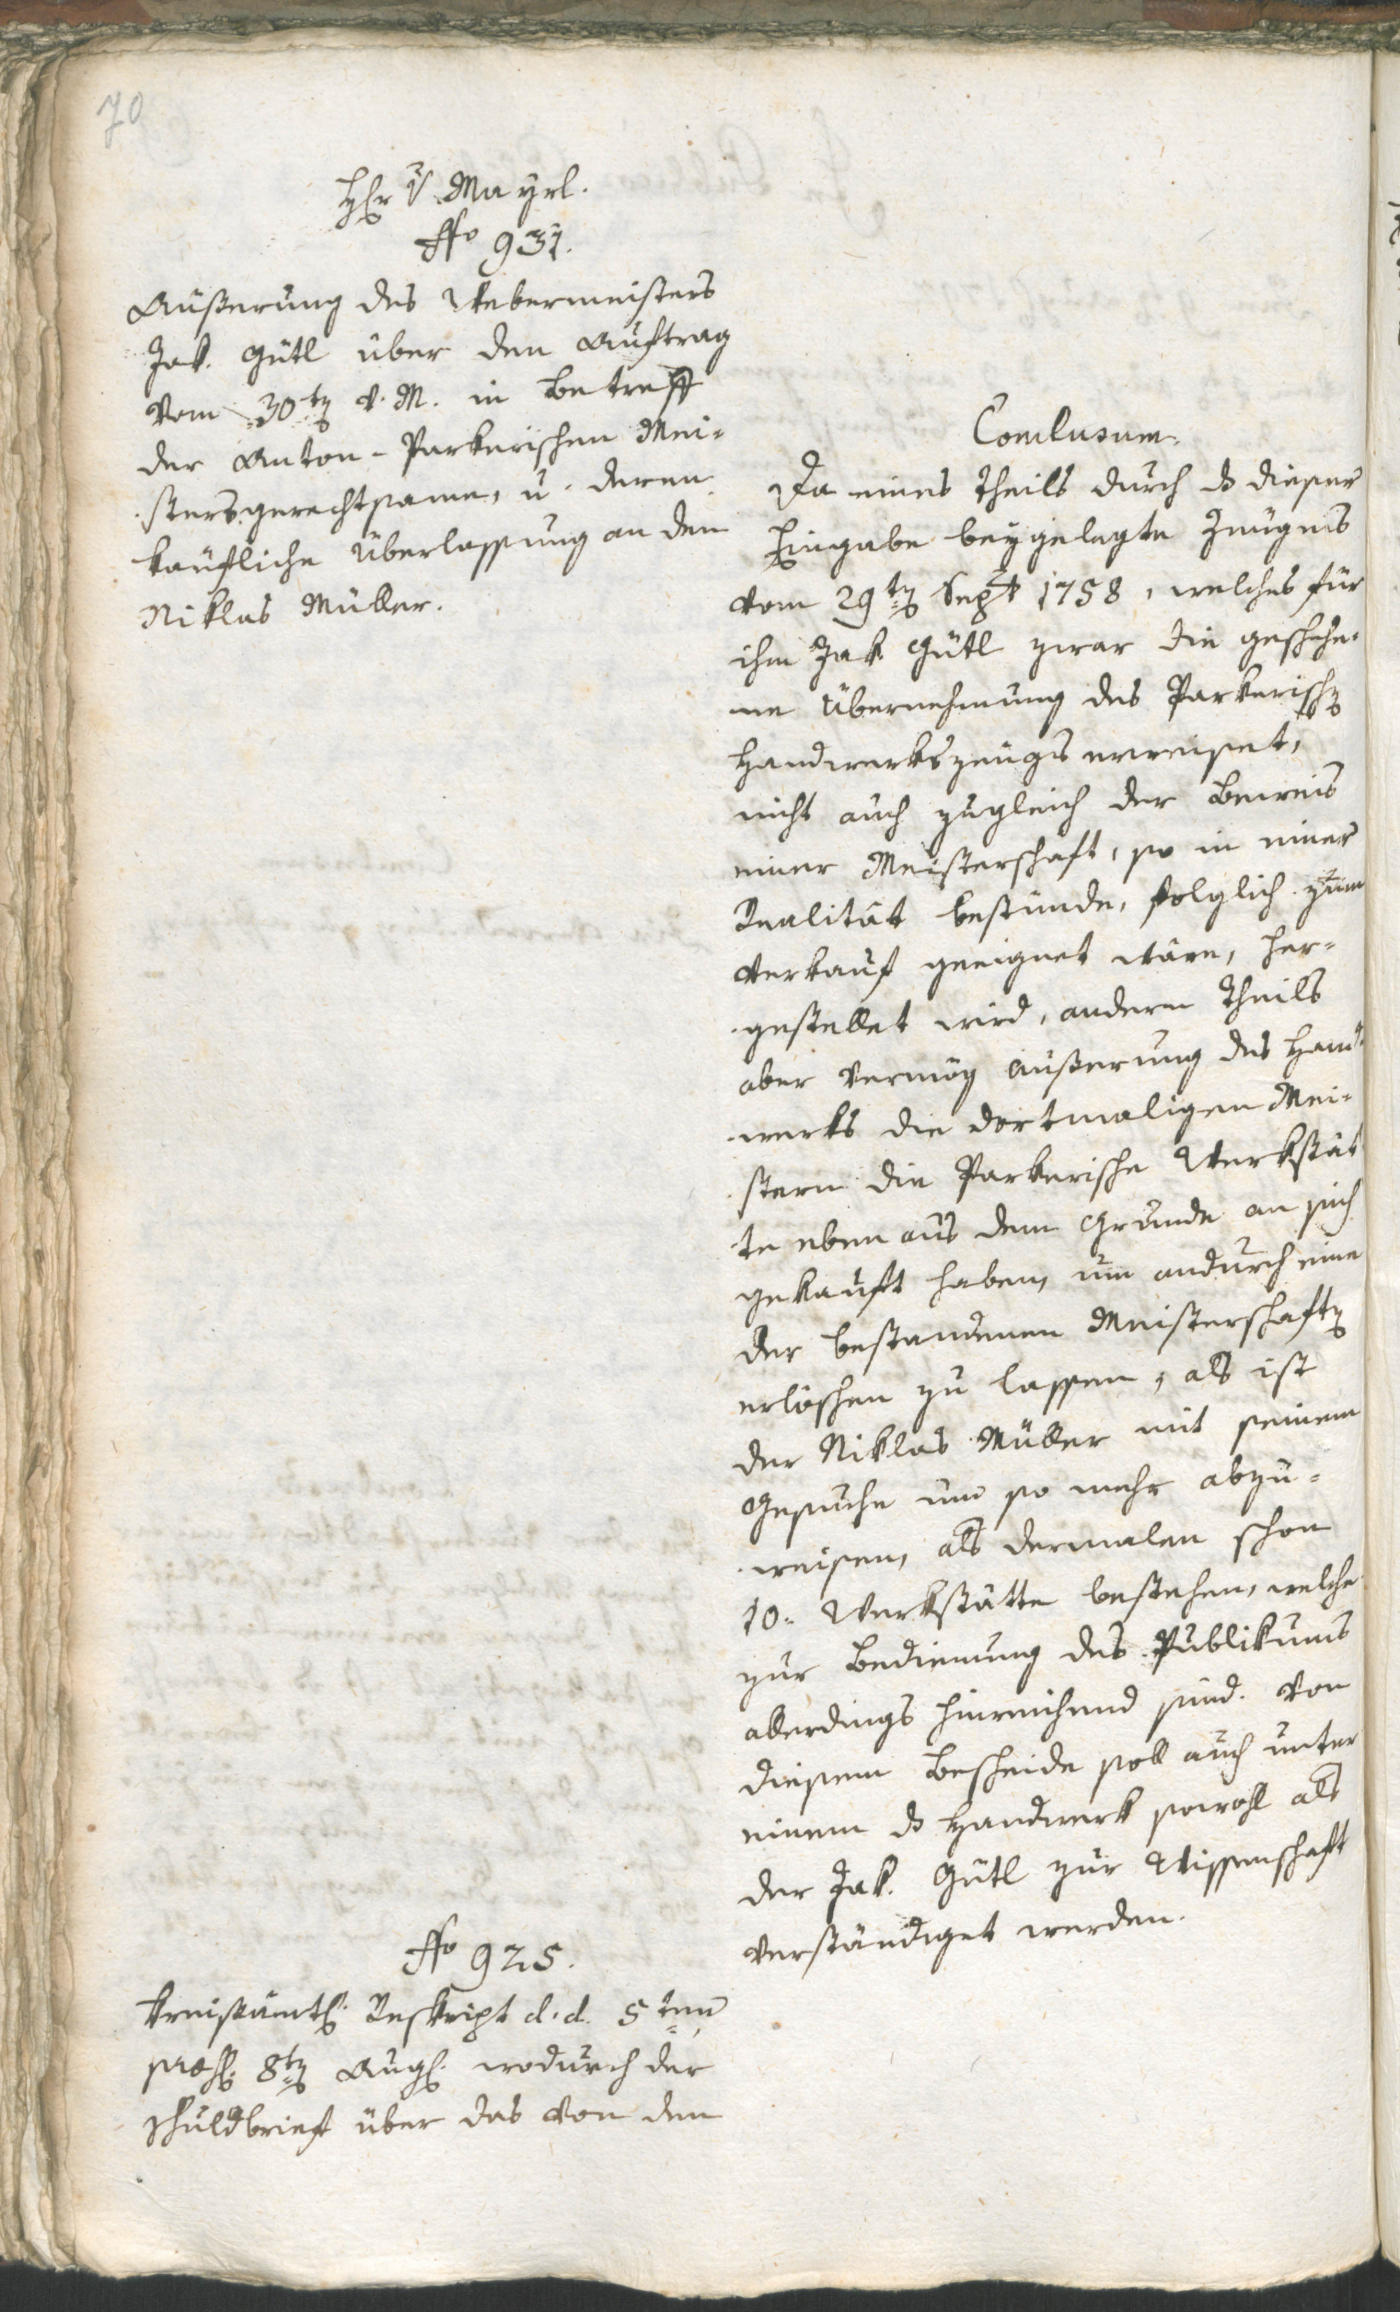 70
Hr v Mayrl.
No 931.
Äußerung des Webermeisters
Jak. Gütl über den Auftrag
vom 30ten v. M. in Betreff
der Anton-Parkerischen Mei=
stersgerechtsame, u. deren
käufliche Überlassung an den
Niklas Müller.
Conclusum.
Da eines Theils durch ds dieser
Eingabe beygelegte Zeugnis
vom 29ten Sept 1758, welches für
ihn Jak. Gütl zwar die geschehe=
ne Übernehmung des Parkerischen
Handwerkszeugs erweiset,
nicht auch zugleich der Beweis
einer Meisterschaft, so in einer
Realität bestünde, folglich zum
Verkauf geeignet wäre, her=
gestellet wird, andern Theils
aber vermög Äußerung des Hand=
werks die dortmaligen Mei=
stern die Parkerische Werkstät
te eben aus dem Grunde an sich
gekauft haben, um andurch eine
der bestandenen Meisterschaften
erlöschen zu lassen, als ist
der Niklas Müller mit seinem
Gesuche um so mehr abzu=
weisen, als dermalen schon
10. Werkstätte bestehen, welche
zur Bedienung des Publikums
allerdings hinreichend sind. Von
diesem Bescheide soll auch unter
einem ds Handwerk sowohl als
der Jak. Gütl zur Wissenschaft
verständiget werden.
No 925.
Kreisämtl. Reskript d. d. 5ten
präs. 8ten Aug. wodurch der
Schuldbrief über das von dem